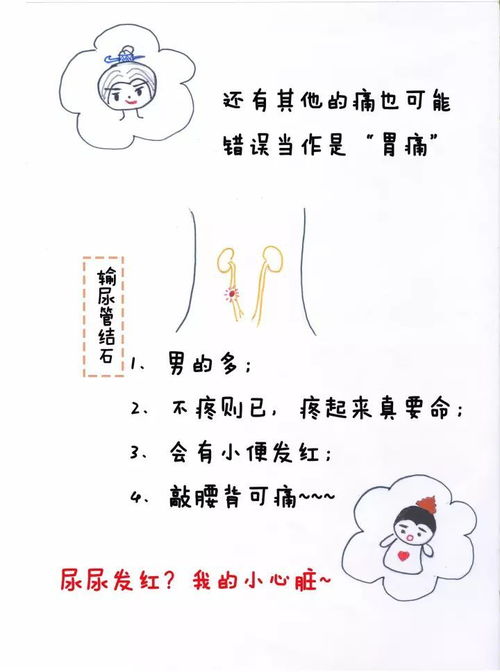 还有其他的痛也可能
错误当作是“胃痛”
输尿管结石
1、男的多；
2、不疼则已，疼起来真要命；
3、会有小便发红；
4、敲腰背可痛~~~
尿尿发红？我的小心脏~